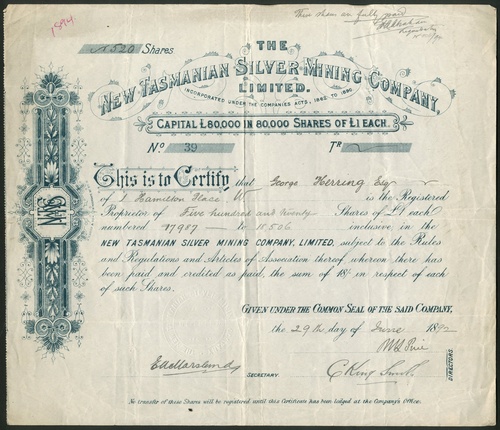 1894
These shares are fully paid
Liquidator
£520 Shares
THE
NEW TASMANIAN SILVER MINING COMPANY,
LIMITED.
INCORPORATED UNDER THE COMPANIES ACTS, 1862 TO 1890.
CAPITAL £80,000 IN 80,000 SHARES OF £1 EACH.
No 39 Tr
This is to Certify that George Herring Esq
of 1 Hamilton Place W is the Registered
Proprietor of Five hundred and twenty Shares of £1 each
numbered 17987 to 18506 inclusive in the
NEW TASMANIAN SILVER MINING COMPANY, LIMITED, subject to the Rules
and Regulations and Articles of Association thereof, whereon there has
been paid and credited as paid, the sum of 18/- in respect of each
of such Shares.
GIVEN UNDER THE COMMON SEAL OF THE SAID COMPANY,
the 29th day of June 1892
SECRETARY.
C King Smith
DIRECTORS.
No transfer of these Shares will be registered until this Certificate has been lodged at the Company's Office.